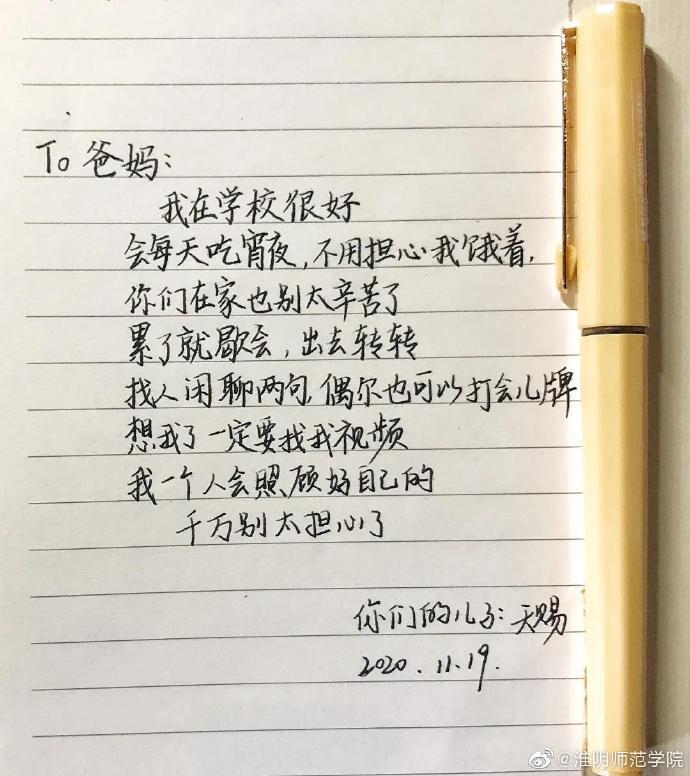 To 爸妈:
我在学校很好
会每天吃宵夜,不用担心我饿着.
你们在家也别太辛苦了
累了就歇会,出去转转
找人闲聊两句,偶尔也可以打会儿牌
想我了一定要找我视频
我一个人会照顾好自己的
千万别太担心了
你们的儿子:天赐
2020.11.19.
@淮阴师范学院